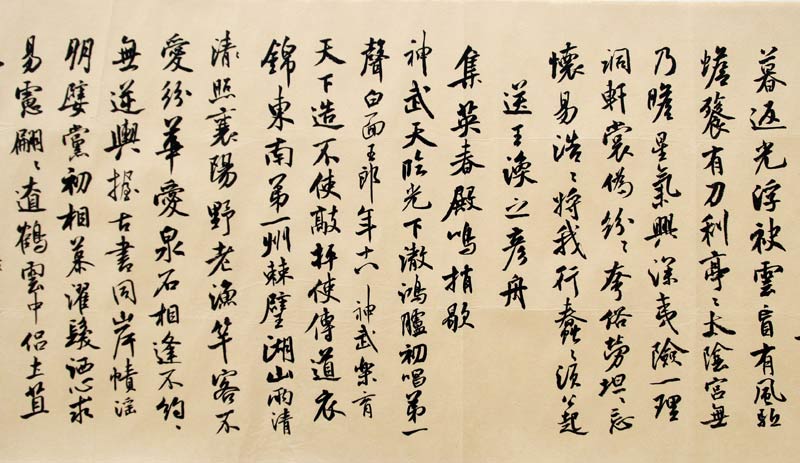 暮返光浮被雲肩有風馭
蟾餮有刀利亭〻太陰宮無
乃瞻星氣興深夷險一理
洞軒裳偽紛〻夸俗勞坦〻忘
懷易浩〻將我行蠢〻須公起
送王渙之彦舟
集英春殿鳴捎歇
神武天臨光下澈鴻臚初唱第一
聲白面王郎年十八神武樂育
天下造不使敲抨使傳道衣
錦東南第一州棘璧湖山兩清
清照襄陽野老漁竿客不
愛紛華愛泉石相逢不約〻
無逆輿握古書同岸幘淫
朋嬖黨初相慕濯髮洒心求
易慮翩〻遼鶴雲中侶土苴